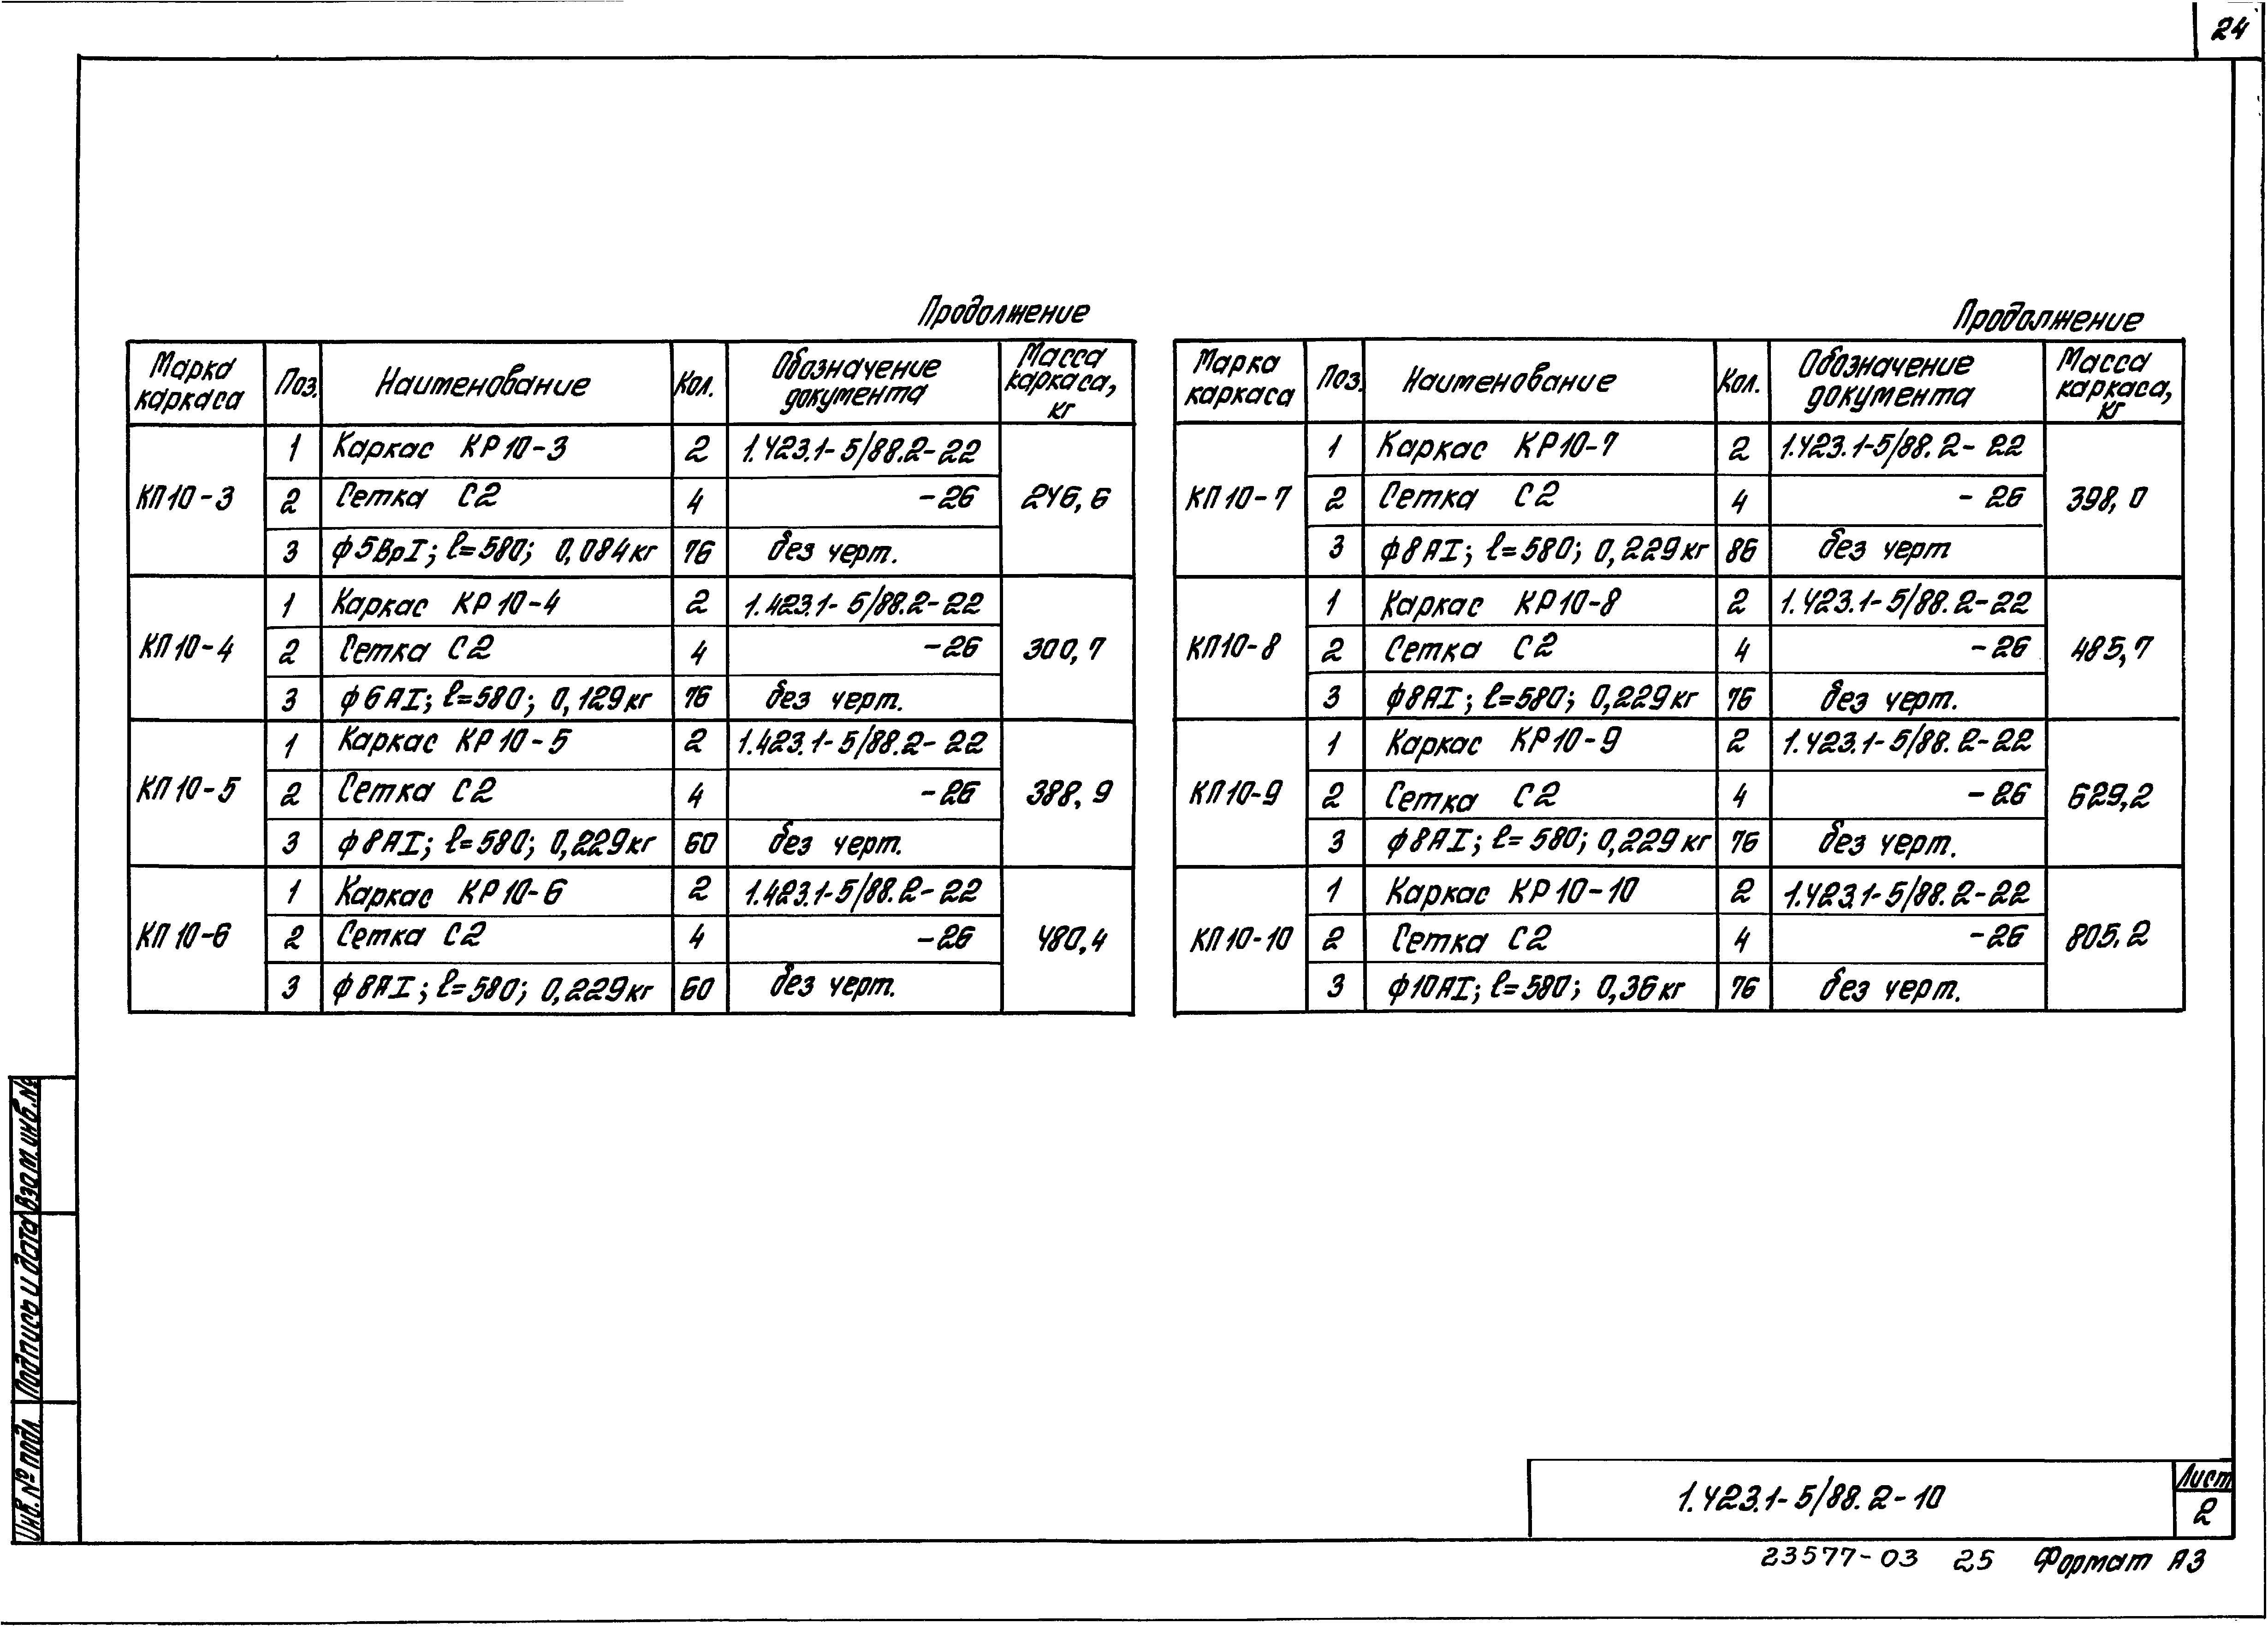 24
Продолжение
Марка каркаса | Поз. | Наименование | Кол. | Обозначение документа | Масса каркаса, кг
КП10-3 | 1 | Каркас КР10-3 | 2 | 1.423.1-5/88.2-22 | 246,6
2 | Сетка С2 | 4 | -26
3 | ф5ВрI; ℓ=580; 0,084кг | 76 | без черт.
КП10-4 | 1 | Каркас КР10-4 | 2 | 1.423.1-5/88.2-22 | 300,7
2 | Сетка С2 | 4 | -26
3 | ф6АI; ℓ=580; 0,129кг | 76 | без черт.
КП10-5 | 1 | Каркас КР10-5 | 2 | 1.423.1-5/88.2-22 | 388,9
2 | Сетка С2 | 4 | -26
3 | ф8АI; ℓ=580; 0,229кг | 60 | без черт.
КП10-6 | 1 | Каркас КР10-6 | 2 | 1.423.1-5/88.2-22 | 480,4
2 | Сетка С2 | 4 | -26
3 | ф8АI; ℓ=580; 0,229кг | 60 | без черт.
Продолжение
Марка каркаса | Поз. | Наименование | Кол. | Обозначение документа | Масса каркаса, кг
КП10-7 | 1 | Каркас КР10-7 | 2 | 1.423.1-5/88.2-22 | 398,0
2 | Сетка С2 | 4 | -26
3 | ф8АI; ℓ=580; 0,229кг | 86 | без черт
КП10-8 | 1 | Каркас КР10-8 | 2 | 1.423.1-5/88.2-22 | 485,7
2 | Сетка С2 | 4 | -26
3 | ф8АI; ℓ=580; 0,229кг | 76 | без черт.
КП10-9 | 1 | Каркас КР10-9 | 2 | 1.423.1-5/88.2-22 | 629,2
2 | Сетка С2 | 4 | -26
3 | ф8АI; ℓ=580; 0,229кг | 76 | без черт.
КП10-10 | 1 | Каркас КР10-10 | 2 | 1.423.1-5/88.2-22 | 805,2
2 | Сетка С2 | 4 | -26
3 | ф10АI; ℓ=580; 0,36кг | 76 | без черт.
Инв. № подл. Подпись и дата Взам. инв. №
1.423.1-5/88.2-10
Лист
2
23577-03 25 Формат А3